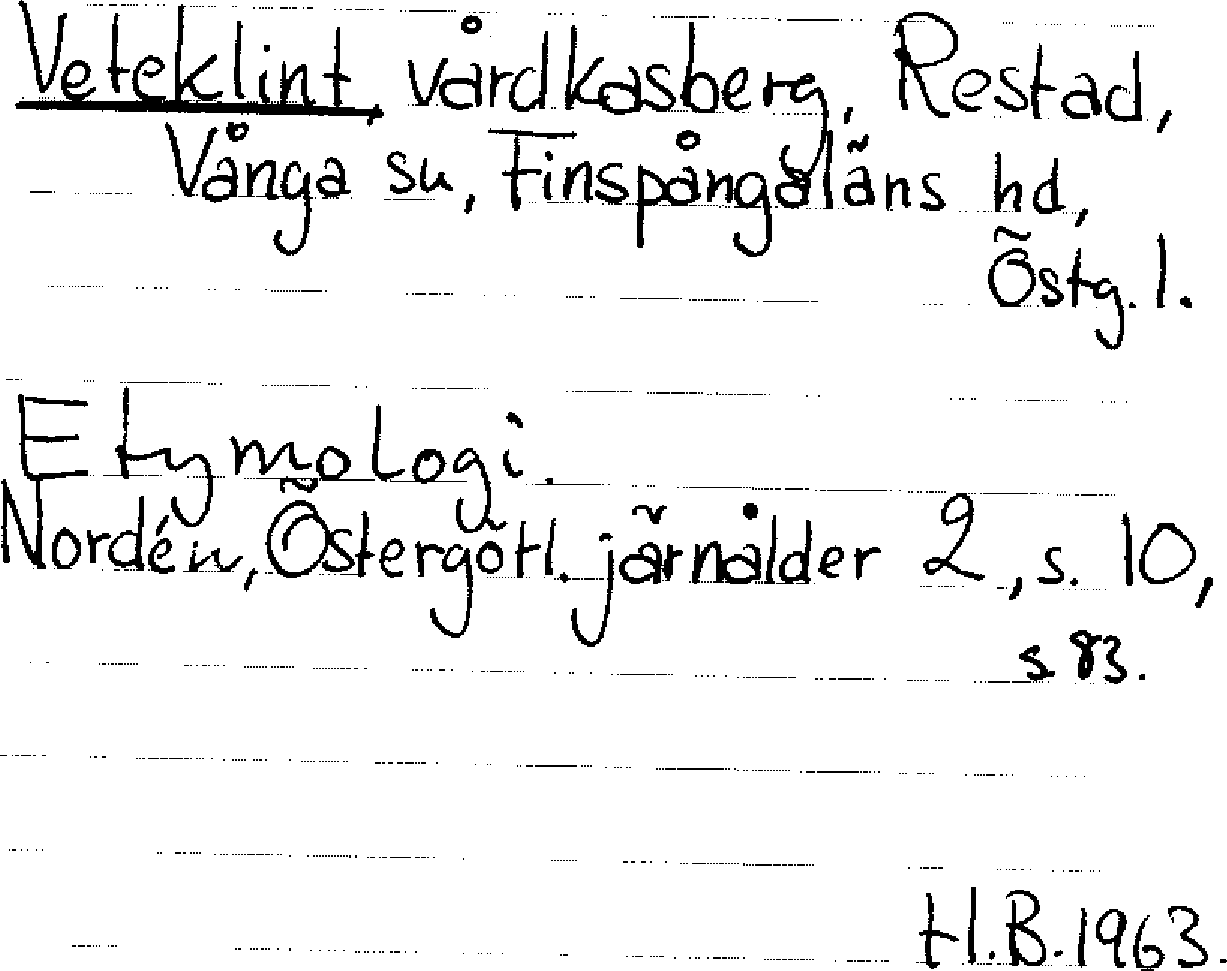 Veteklint, vårdkasberg, Restad,
Vånga sn, Finspångaläns hd,
Östg. l.
Etymologi.
Nordén, Östergötl. järnålder 2, s. 10,
s 83.
H.B. 1963.